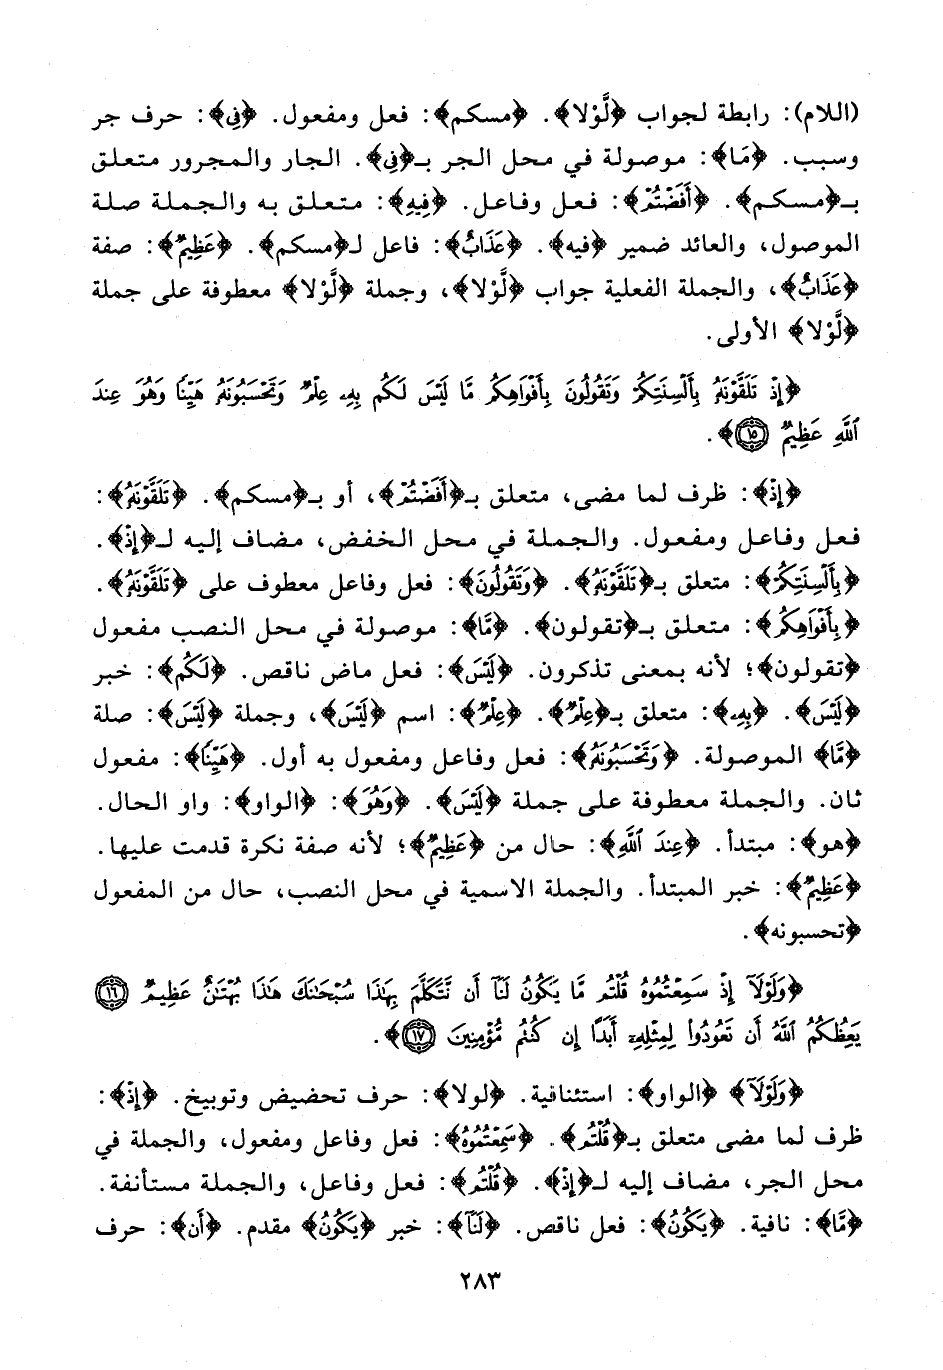 (اللام): رابطة لجواب ﴿لَّوْلَا﴾. ﴿مسكم﴾: فعل ومفعول. ﴿فِي﴾: حرف جر
وسبب. ﴿مَا﴾: موصولة في محل الجر بـ﴿فِي﴾. الجار والمجرور متعلق
بـ﴿مسكم﴾. ﴿أَفَضْتُمْ﴾: فعل وفاعل. ﴿فِيهِ﴾: متعلق به والجملة صلة
الموصول، والعائد ضمير ﴿فيه﴾. ﴿عَذَابٌ﴾: فاعل لـ﴿مسكم﴾. ﴿عَظِيمٌ﴾: صفة
﴿عَذَابٌ﴾، والجملة الفعلية جواب ﴿لَّوْلَا﴾، وجملة ﴿لَّوْلَا﴾ معطوفة على جملة
﴿لَّوْلَا﴾ الأولى.
﴿إِذْ تَلَقَّوْنَهُ بِأَلْسِنَتِكُمْ وَتَقُولُونَ بِأَفْوَاهِكُم مَّا لَيْسَ لَكُم بِهِ عِلْمٌ وَتَحْسَبُونَهُ هَيِّنًا وَهُوَ عِندَ
ٱللَّهِ عَظِيمٌ ١٥﴾.
﴿إِذْ﴾: ظرف لما مضى، متعلق بـ﴿أَفَضْتُمْ﴾، أو بـ﴿مسكم﴾. ﴿تَلَقَّوْنَهُ﴾:
فعل وفاعل ومفعول. والجملة في محل الخفض، مضاف إليه لـ﴿إِذْ﴾.
﴿بِأَلْسِنَتِكُمْ﴾: متعلق بـ﴿تَلَقَّوْنَهُ﴾. ﴿وَتَقُولُونَ﴾: فعل وفاعل معطوف على ﴿تَلَقَّوْنَهُ﴾.
﴿بِأَفْوَاهِكُم﴾: متعلق بـ﴿تقولون﴾. ﴿مَّا﴾: موصولة في محل النصب مفعول
﴿تقولون﴾؛ لأنه بمعنى تذكرون. ﴿لَيْسَ﴾: فعل ماض ناقص. ﴿لَكُم﴾: خبر
﴿لَيْسَ﴾. ﴿بِهِ﴾: متعلق بـ﴿عِلْمٌ﴾. ﴿عِلْمٌ﴾: اسم ﴿لَيْسَ﴾، وجملة ﴿لَيْسَ﴾: صلة
﴿مَّا﴾ الموصولة. ﴿وَتَحْسَبُونَهُ﴾: فعل وفاعل ومفعول به أول. ﴿هَيِّنًا﴾: مفعول
ثان. والجملة معطوفة على جملة ﴿لَيْسَ﴾. ﴿وَهُوَ﴾: ﴿الواو﴾: واو الحال.
﴿هو﴾: مبتدأ. ﴿عِندَ اللَّهِ﴾: حال من ﴿عَظِيمٌ﴾؛ لأنه صفة نكرة قدمت عليها.
﴿عَظِيمٌ﴾: خبر المبتدأ. والجملة الاسمية في محل النصب، حال من المفعول
﴿تحسبونه﴾.
﴿وَلَوْلَآ إِذْ سَمِعْتُمُوهُ قُلْتُم مَّا يَكُونُ لَنَآ أَن نَّتَكَلَّمَ بِهَٰذَا سُبْحَٰنَكَ هَٰذَا بُهْتَٰنٌ عَظِيمٌ ١٦
يَعِظُكُمُ ٱللَّهُ أَن تَعُودُوا۟ لِمِثْلِهِۦٓ أَبَدًا إِن كُنتُم مُّؤْمِنِينَ ١٧﴾.
﴿وَلَوْلَآ﴾ ﴿الواو﴾: استئنافية. ﴿لولا﴾: حرف تحضيض وتوبيخ. ﴿إِذْ﴾:
ظرف لما مضى متعلق بـ﴿قُلْتُم﴾. ﴿سَمِعْتُمُوهُ﴾: فعل وفاعل ومفعول، والجملة في
محل الجر، مضاف إليه لـ﴿إِذْ﴾. ﴿قُلْتُم﴾: فعل وفاعل، والجملة مستأنفة.
﴿مَّا﴾: نافية. ﴿يَكُونُ﴾: فعل ناقص. ﴿لَنَآ﴾: خبر ﴿يَكُونُ﴾ مقدم. ﴿أَن﴾: حرف
٢٨٣